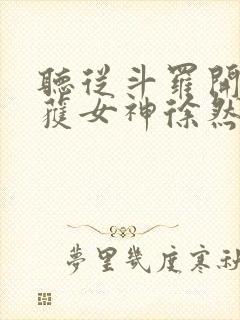 聽從斗羅開
獲女神徐然
夢里幾度寒秋